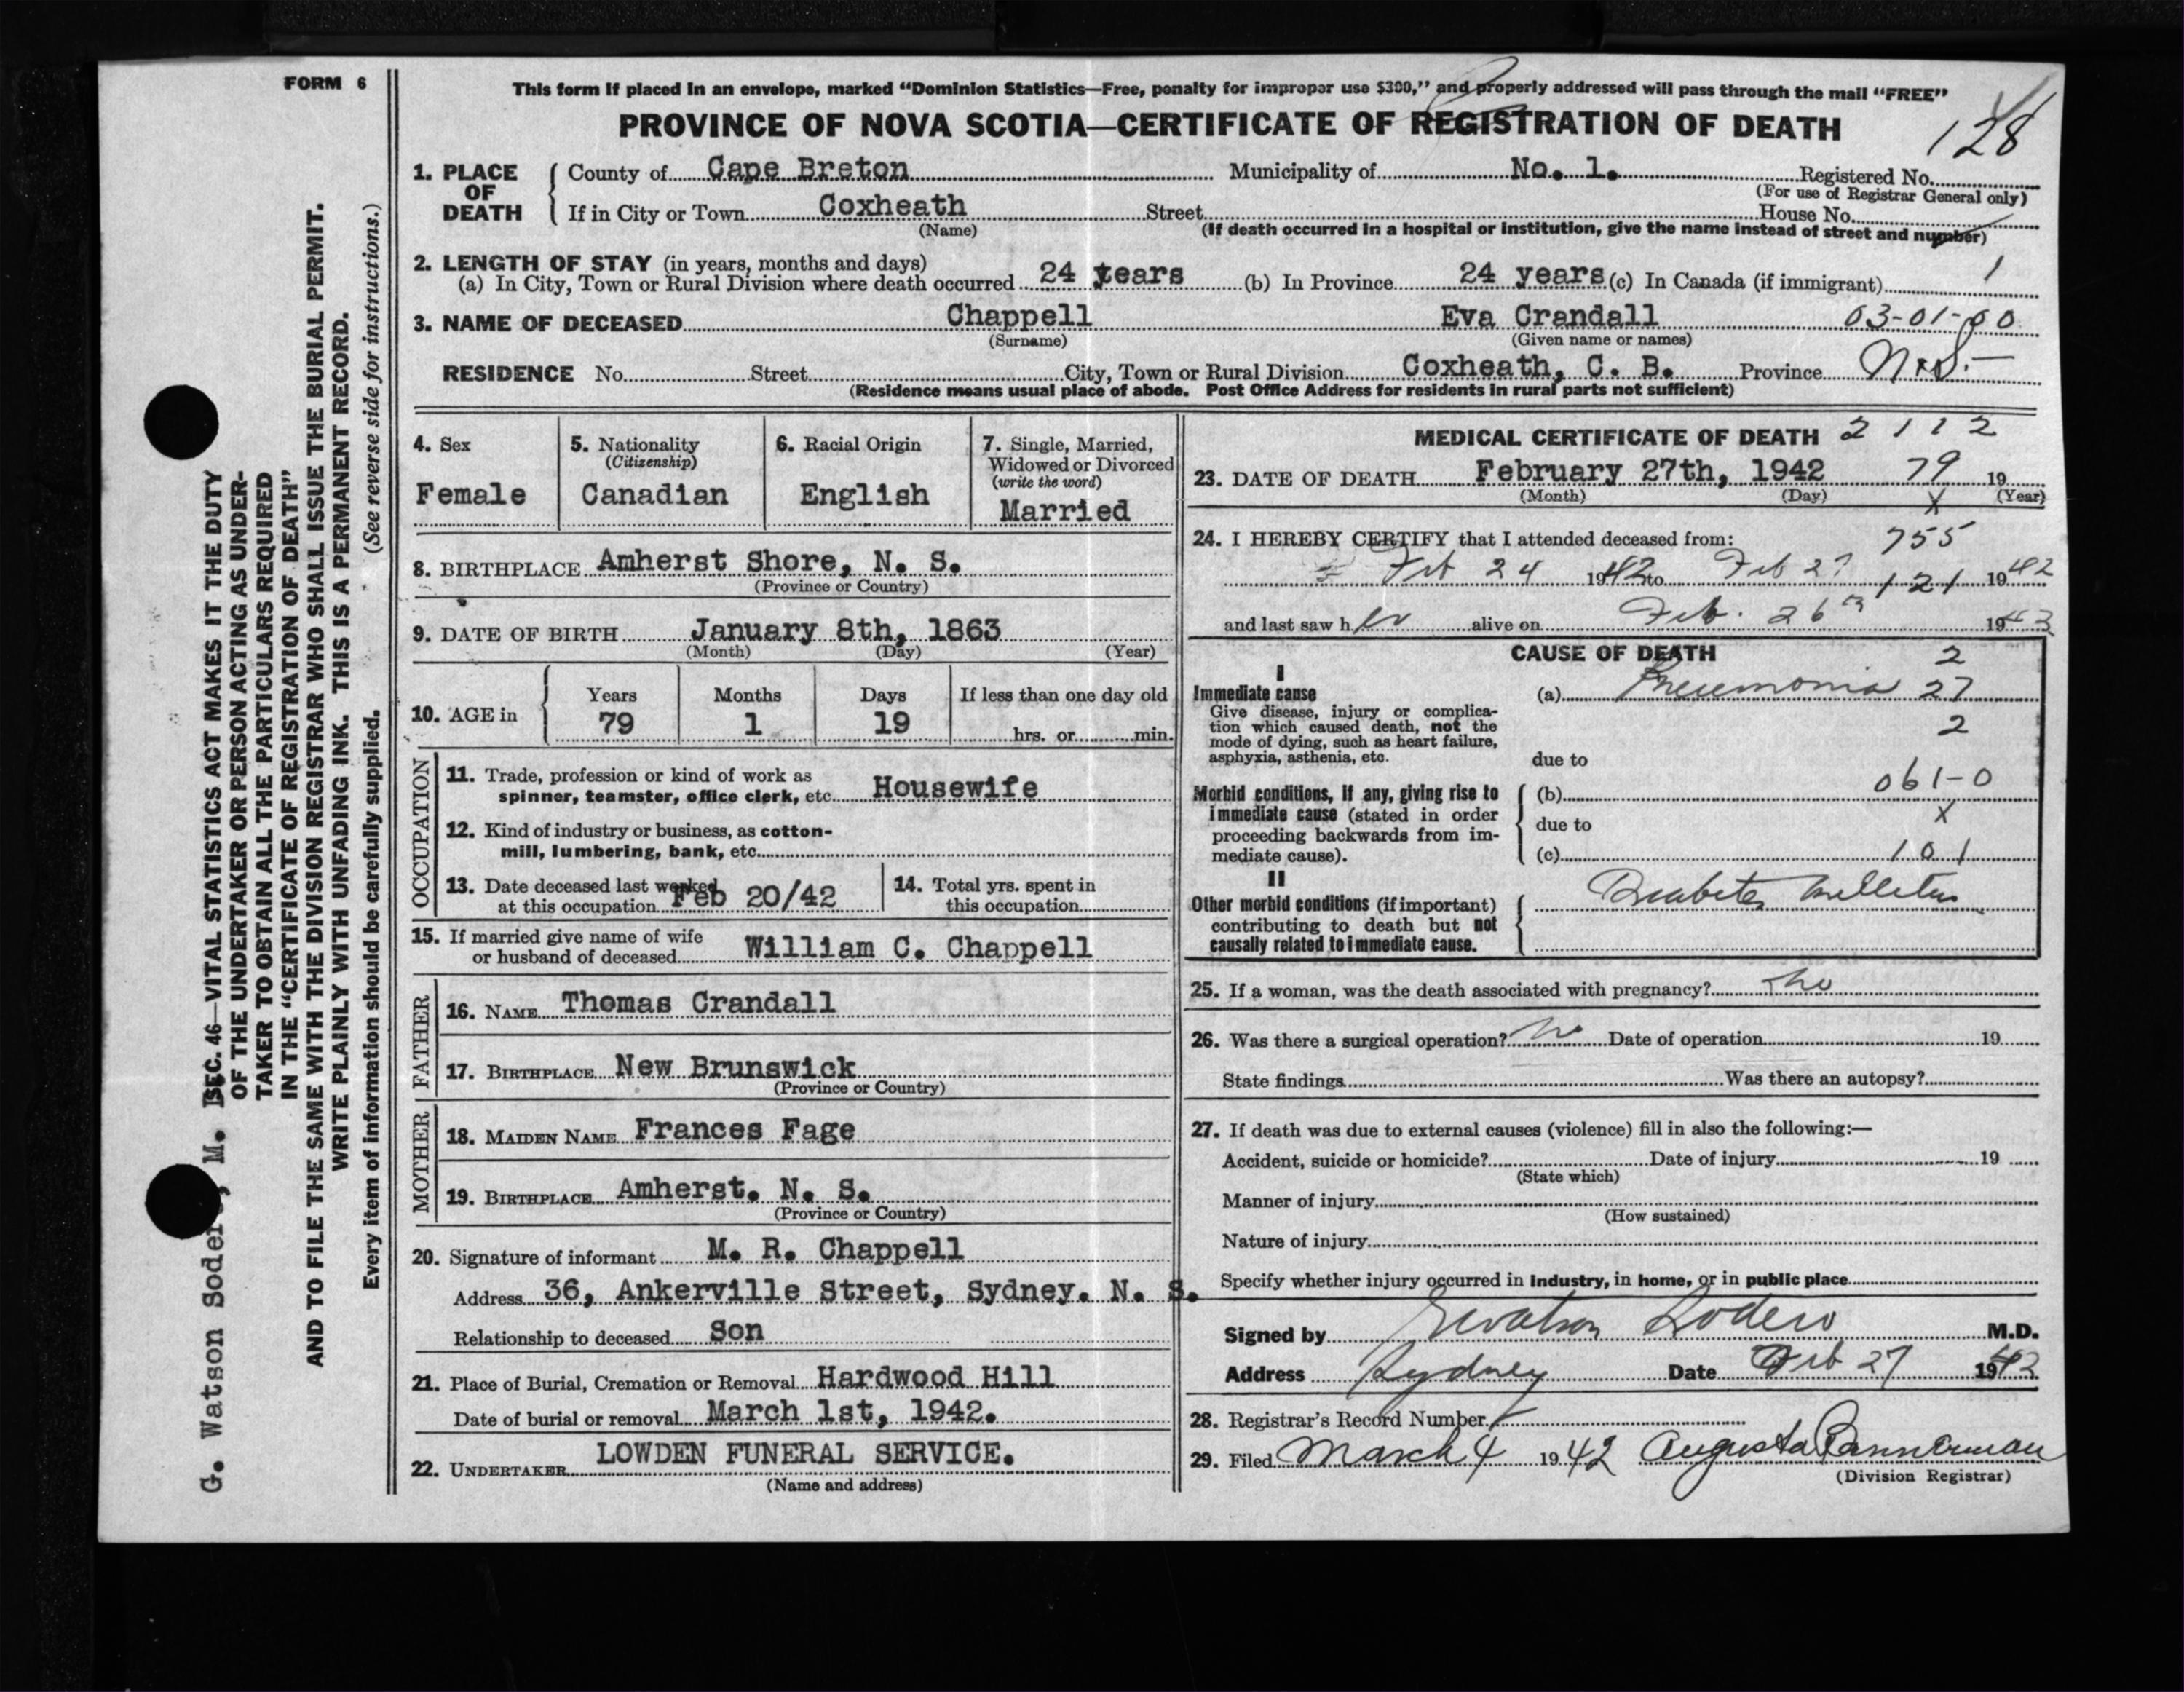 FORM 6
This form if placed in an envelope, marked "Dominion Statistics—Free, penalty for improper use $300," and properly addressed will pass through the mail "FREE"
PROVINCE OF NOVA SCOTIA—CERTIFICATE OF REGISTRATION OF DEATH
128
1. PLACE OF DEATH
County of Cape Breton Municipality of No. 1. Registered No.
(For use of Registrar General only)
If in City or Town Coxheath Street House No.
(Name) (If death occurred in a hospital or institution, give the name instead of street and number)
2. LENGTH OF STAY (in years, months and days)
(a) In City, Town or Rural Division where death occurred 24 years (b) In Province 24 years (c) In Canada (if immigrant) 1
3. NAME OF DECEASED Chappell Eva Crandall 03-01-00
(Surname) (Given name or names)
RESIDENCE No. Street City, Town or Rural Division Coxheath, C. B. Province N.S.
(Residence means usual place of abode. Post Office Address for residents in rural parts not sufficient)
4. Sex
Female
5. Nationality
(Citizenship)
Canadian
6. Racial Origin
English
7. Single, Married,
Widowed or Divorced
(write the word)
Married
8. BIRTHPLACE Amherst Shore, N. S.
(Province or Country)
9. DATE OF BIRTH January 8th, 1863
(Month) (Day) (Year)
10. AGE in
Years Months Days If less than one day old
79 1 19 hrs. or min.
OCCUPATION
11. Trade, profession or kind of work as
spinner, teamster, office clerk, etc. Housewife
12. Kind of industry or business, as cotton-
mill, lumbering, bank, etc.
13. Date deceased last worked
at this occupation Feb 20/42
14. Total yrs. spent in
this occupation
15. If married give name of wife
or husband of deceased William C. Chappell
FATHER
16. NAME Thomas Crandall
17. BIRTHPLACE New Brunswick
(Province or Country)
MOTHER
18. MAIDEN NAME Frances Fage
19. BIRTHPLACE Amherst. N. S.
(Province or Country)
20. Signature of informant M. R. Chappell
Address 36, Ankerville Street, Sydney. N. S.
Relationship to deceased Son
21. Place of Burial, Cremation or Removal Hardwood Hill
Date of burial or removal March 1st, 1942.
22. UNDERTAKER LOWDEN FUNERAL SERVICE.
(Name and address)
MEDICAL CERTIFICATE OF DEATH 2 1 1 2
23. DATE OF DEATH February 27th, 1942 79 19
(Month) (Day) X (Year)
24. I HEREBY CERTIFY that I attended deceased from: 755
Feb 24 1942 to Feb 27 121 1942
and last saw her alive on Feb. 26th 1942
CAUSE OF DEATH 2
I
Immediate cause
Give disease, injury or complica-
tion which caused death, not the
mode of dying, such as heart failure,
asphyxia, asthenia, etc.
(a) Pneumonia 27
2
due to
Morbid conditions, if any, giving rise to
immediate cause (stated in order
proceeding backwards from im-
mediate cause).
(b) 061-0
due to X
(c) 101
II
Other morbid conditions (if important)
contributing to death but not
causally related to immediate cause.
Diabetes Mellitus
25. If a woman, was the death associated with pregnancy? No
26. Was there a surgical operation? No Date of operation 19
State findings Was there an autopsy?
27. If death was due to external causes (violence) fill in also the following:—
Accident, suicide or homicide? Date of injury 19
(State which)
Manner of injury
(How sustained)
Nature of injury
Specify whether injury occurred in industry, in home, or in public place
Signed by G Watson Sodero M.D.
Address Sydney Date Feb 27 1942
28. Registrar's Record Number
29. Filed March 4 1942 Augusta Bannerman
(Division Registrar)
G. Watson Sodero, M. D.
SEC. 46—VITAL STATISTICS ACT MAKES IT THE DUTY
OF THE UNDERTAKER OR PERSON ACTING AS UNDER-
TAKER TO OBTAIN ALL THE PARTICULARS REQUIRED
IN THE "CERTIFICATE OF REGISTRATION OF DEATH"
AND TO FILE THE SAME WITH THE DIVISION REGISTRAR WHO SHALL ISSUE THE BURIAL PERMIT.
WRITE PLAINLY WITH UNFADING INK. THIS IS A PERMANENT RECORD.
Every item of information should be carefully supplied. (See reverse side for instructions.)